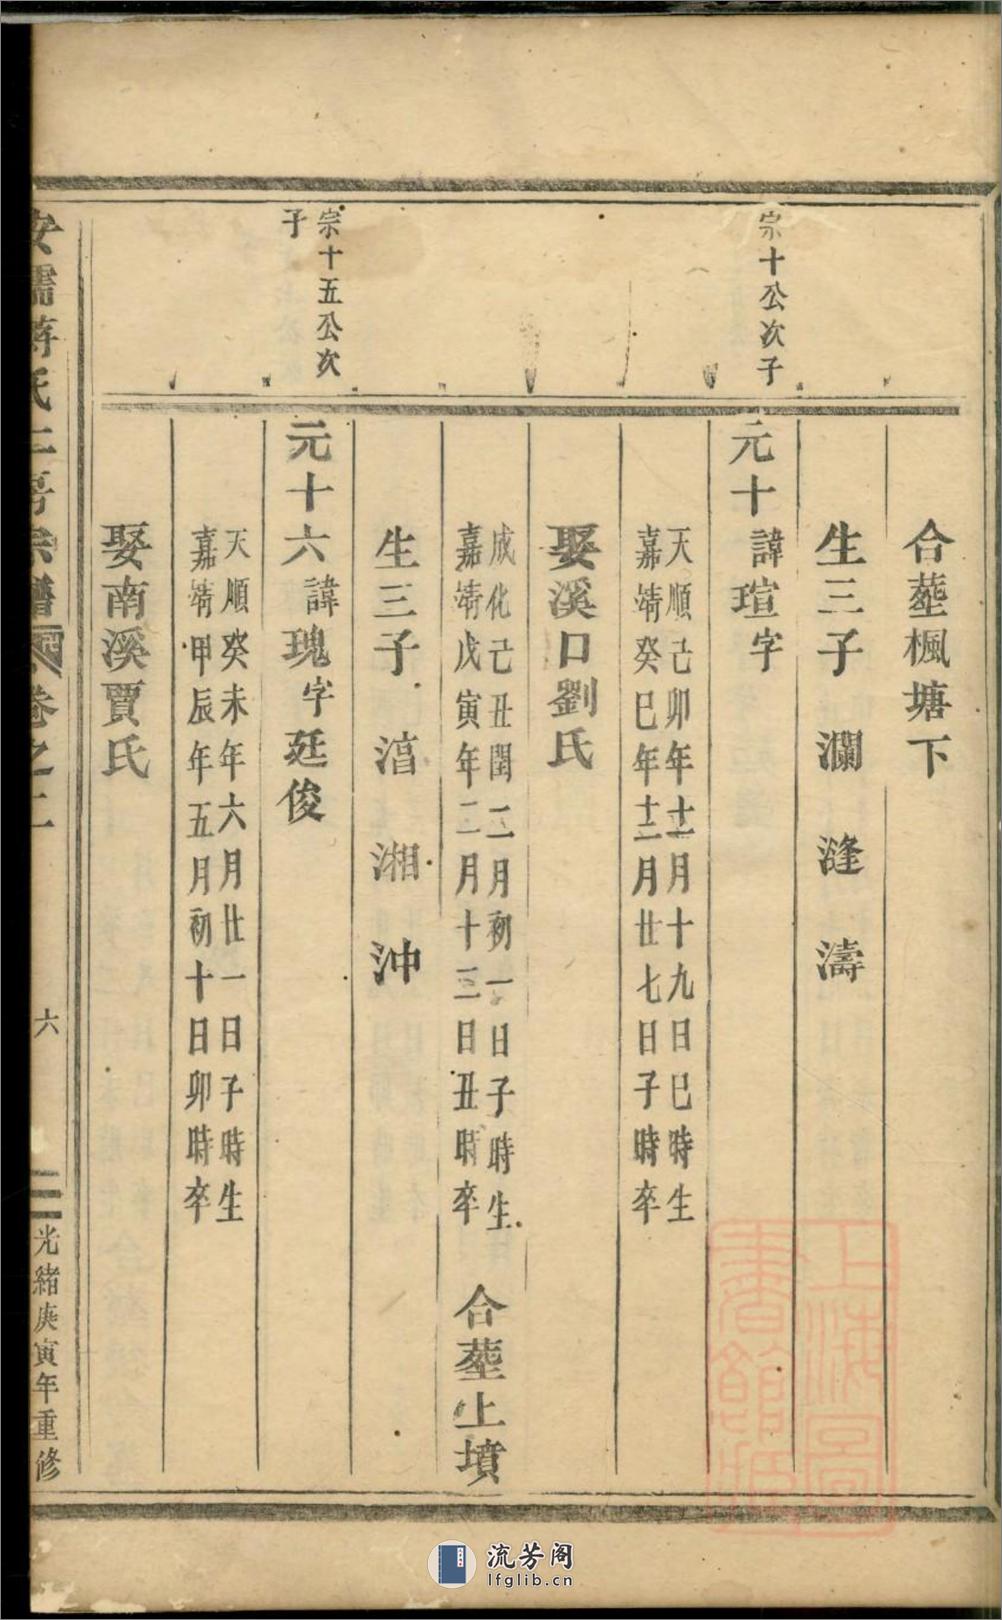 合塟楓塘下
生三子 瀾 漨 濤
宗十公次子
元十諱瑄字
天順己卯年十二月十九日巳時生
嘉靖癸巳年十二月廿七日子時卒
娶溪口劉氏
成化己丑閏二月初一日子時生
嘉靖戊寅年二月十三日丑時卒
合塟上墳
生三子 湻 湘 沖
宗十五公次
子
元十六諱瑰字廷俊
天順癸未年六月廿一日子時生
嘉靖甲辰年五月初十日卯時卒
娶南溪賈氏
氏二房宗譜 卷之二
六
光緒庚寅年重修
上海圖書館藏
流芳阁
lfglib.cn